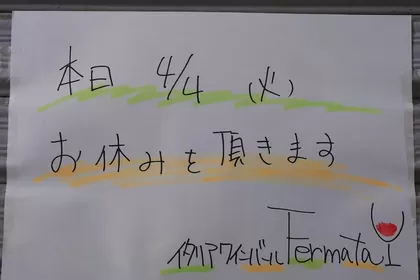 本日 4/4 (火)
お休みを頂きます
イタリアワインバール Fermata